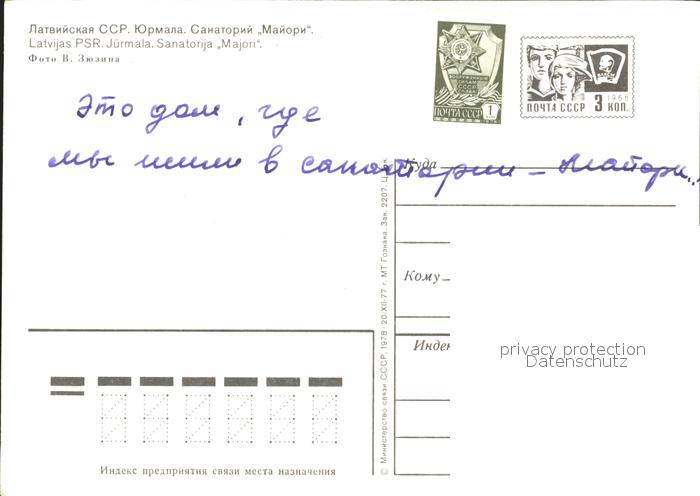 Латвийская ССР. Юрмала. Санаторий „Майори“.
Latvijas PSR. Jūrmala. Sanatorija „Majori“.
Фото В. Зюзина
ВООРУЖЕННЫЕ СИЛЫ СССР
ПОЧТА СССР 1
1966
ВЛКСМ
ПОЧТА СССР 3 КОП.
Это дом, где
мы жили в санатории – Майори..
Куда
Кому
Индек
privacy protection
Datenschutz
© Министерство связи СССР, 1978 20/XII-77 г. МТ Гознака. Зак. 2207. Ц.
Индекс предприятия связи места назначения